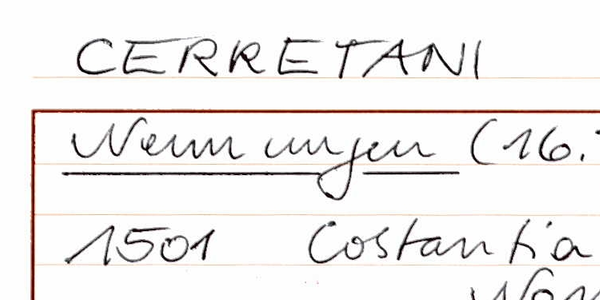 CERRETANI
Nennungen (16.
1501 Costantia